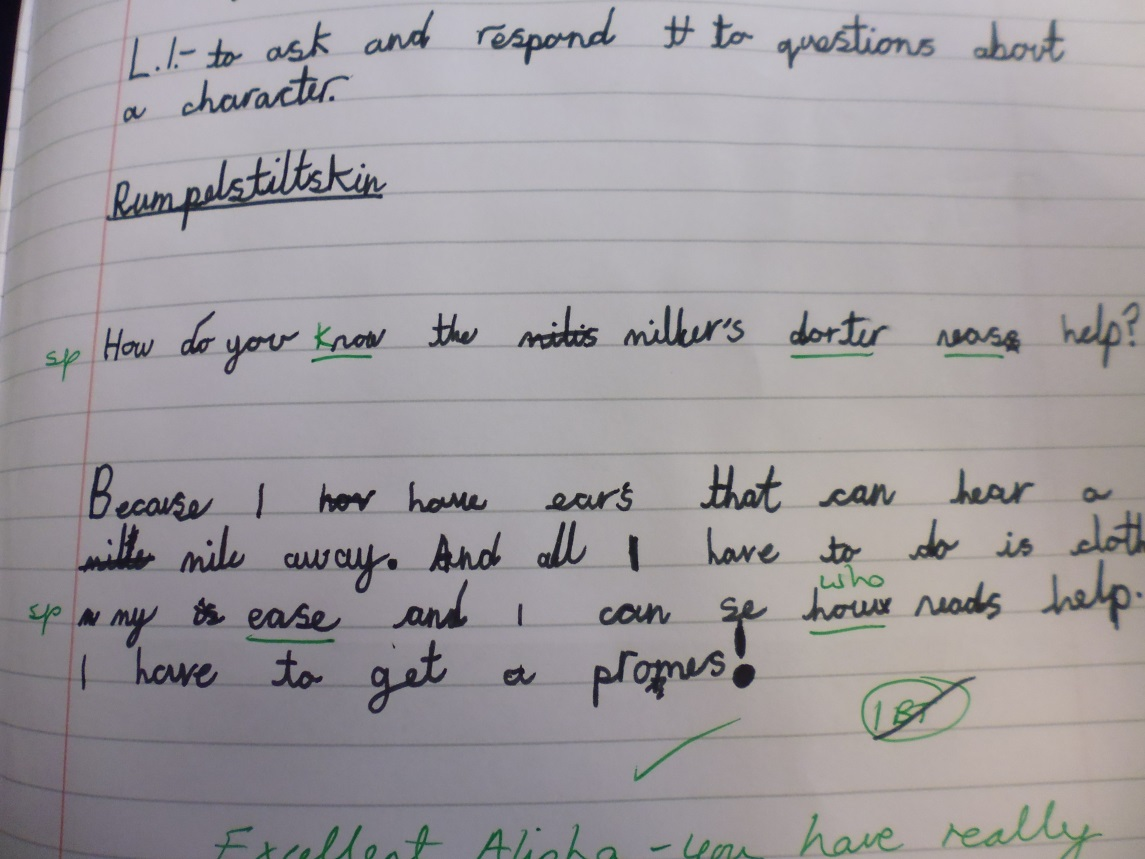 L.I.- to ask and respond to to questions about
a character.
Rumpelstiltskin
sp How do you know the miller's dorter neas help?
Because I have ears that can hear a
mile away. And all I have to do is cloth
who
sp my ease and I can se houw neads help.
I have to get a promes!
1 BT
Excellent Alisha - you have really